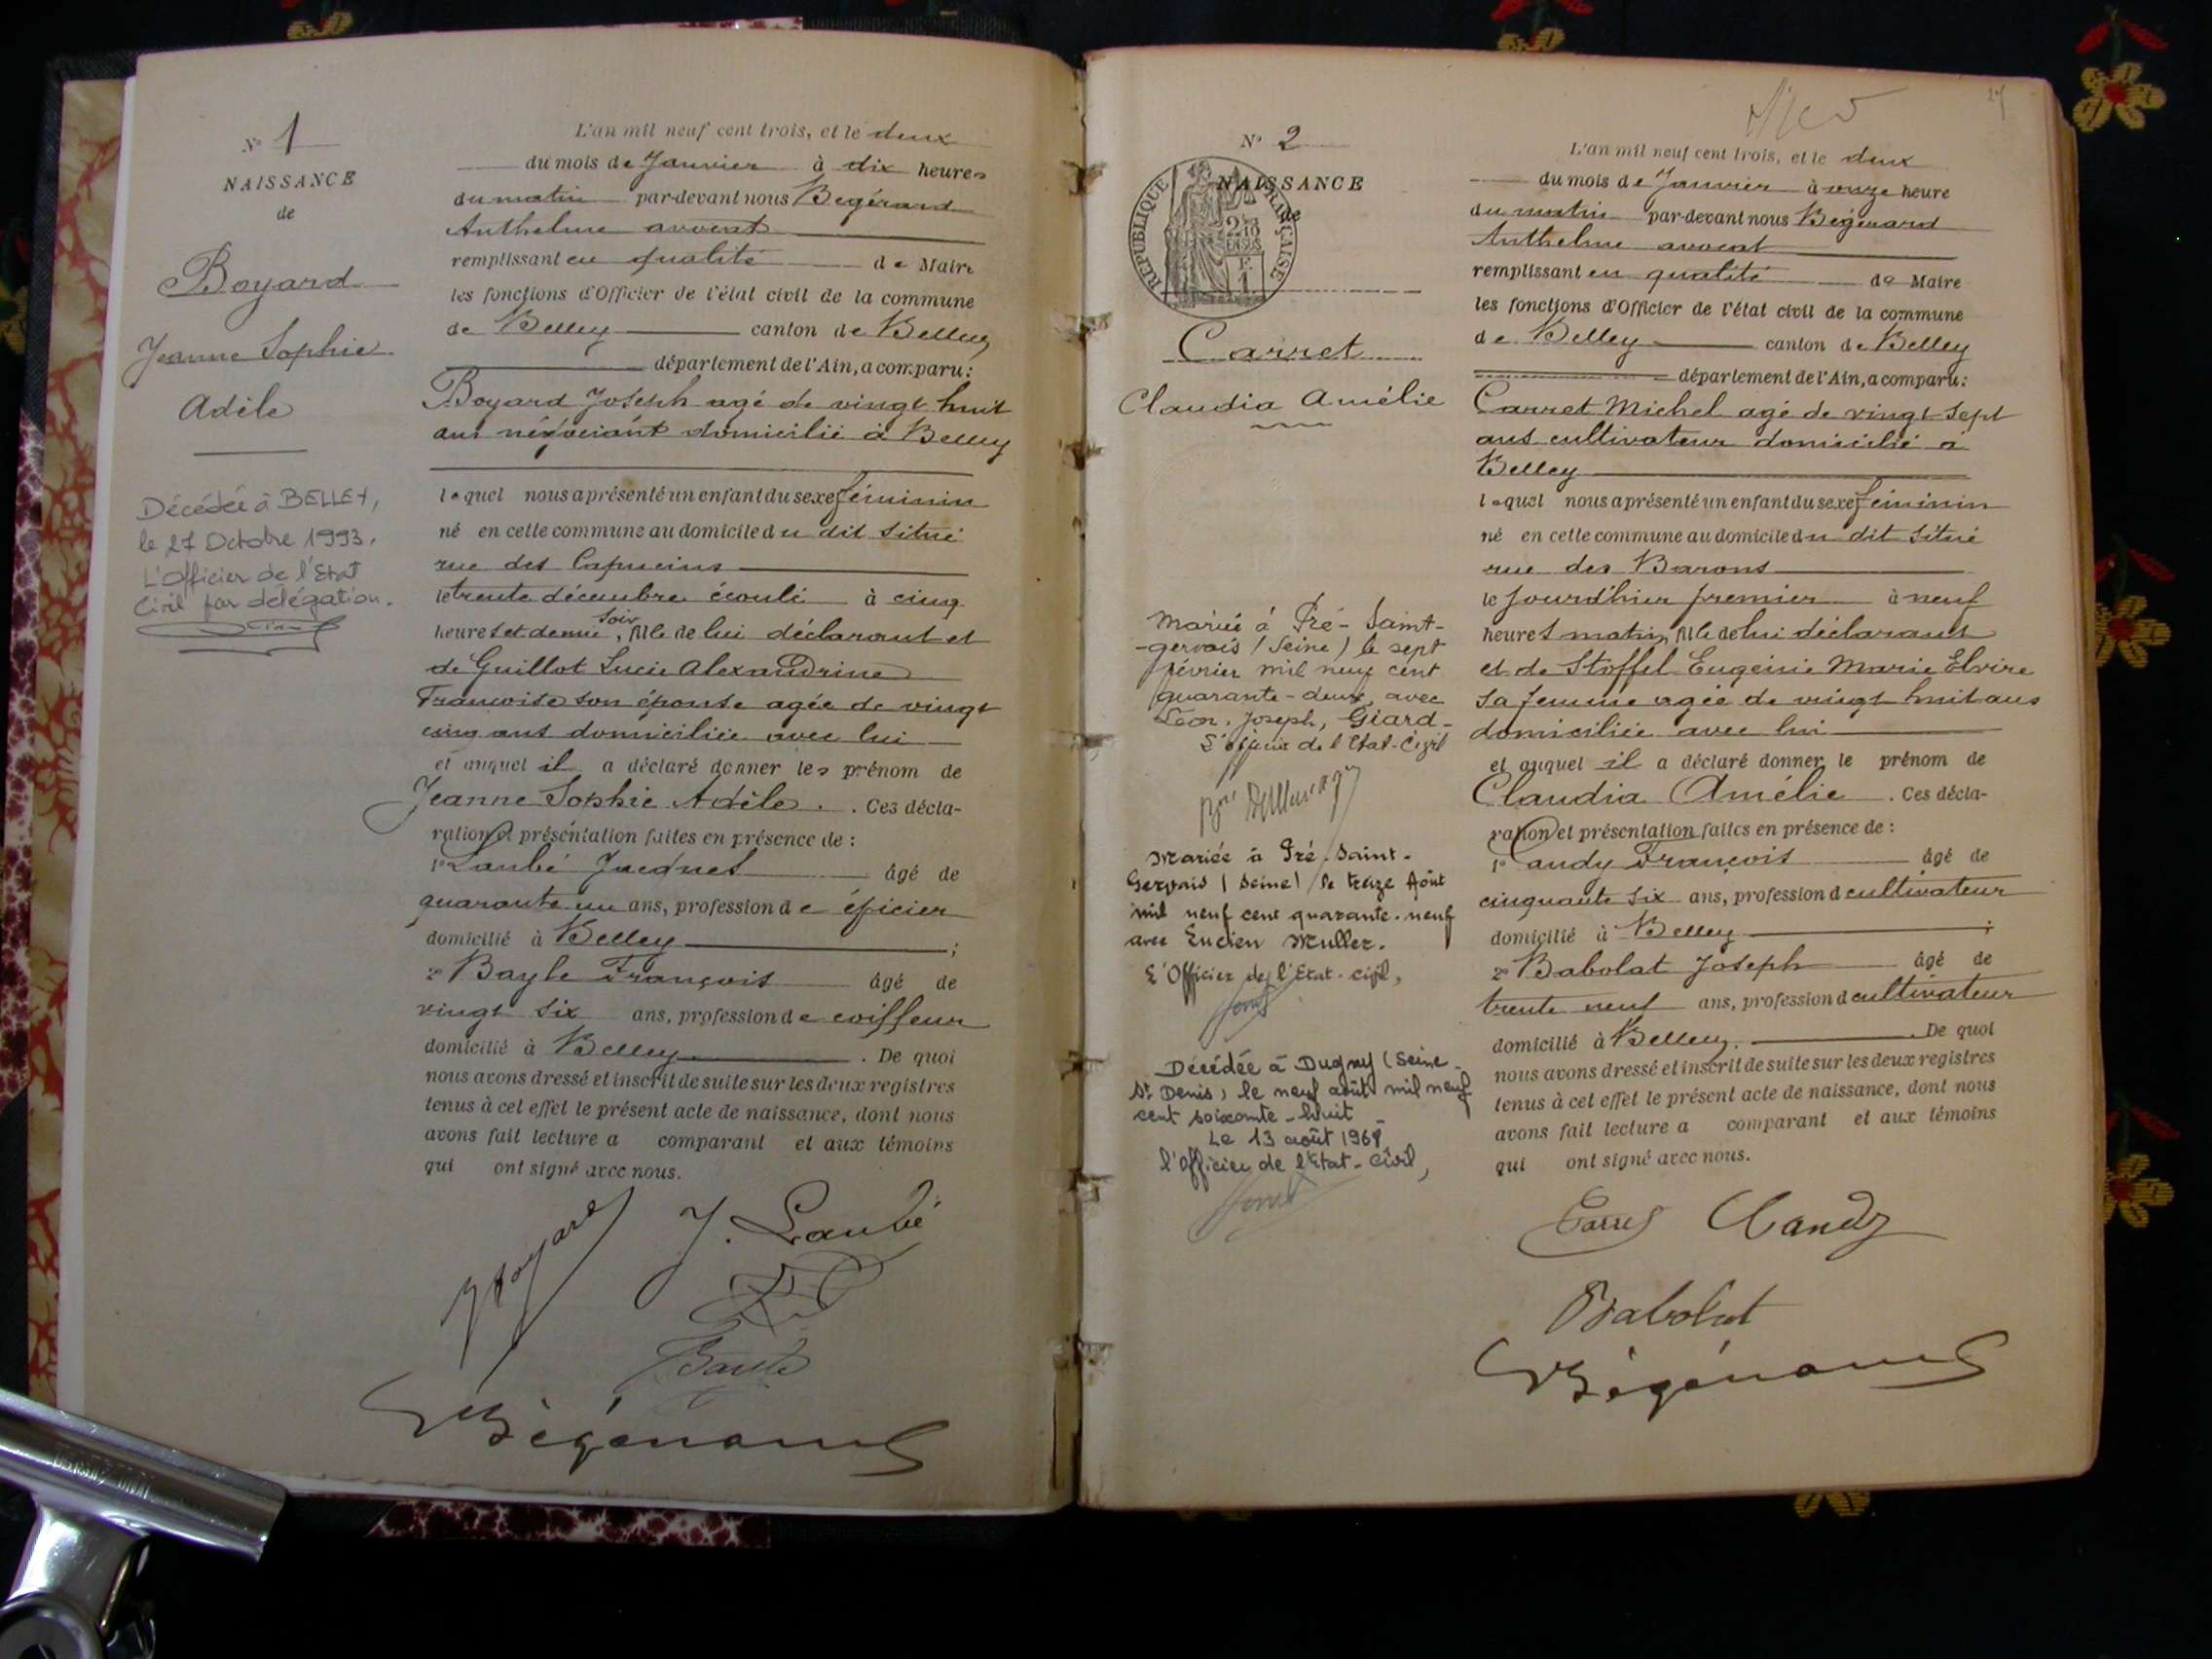 N° 1
NAISSANCE
de
Boyard
Jeanne Sophie
Adèle
Décédée à BELLEY,
le 27 Octobre 1993.
L'Officier de l'Etat
Civil par délégation.
L'an mil neuf cent trois, et le deux
du mois de Janvier à dix heures
du matin par-devant nous Bégérard
Anthelme avocat
remplissant en qualité de Maire
les fonctions d'Officier de l'état civil de la commune
de Belley canton de Belley
département de l'Ain, a comparu:
Boyard Joseph agé de vingt huit
ans négociant domicilié à Belley
lequel nous a présenté un enfant du sexe féminin
né en cette commune au domicile du dit situé
rue des Capucins
le trente décembre écoulé à cinq
heures et demie soir, fille de lui déclarant et
de Guillot Lucie Alexandrine
Françoise son épouse agée de vingt
cinq ans domiciliée avec lui
et auquel il a déclaré donner les prénom de
Jeanne Sophie Adèle. Ces décla-
ration et présentation faites en présence de :
1° Laubé Jacques âgé de
quarante un ans, profession de épicier
domicilié à Belley ;
2° Bayle François âgé de
vingt six ans, profession de coiffeur
domicilié à Belley . De quoi
nous avons dressé et inscrit de suite sur les deux registres
tenus à cet effet le présent acte de naissance, dont nous
avons fait lecture a comparant et aux témoins
qui ont signé avec nous.
J Boyard
J. Laubé
Bayle
Bégérard
27
N° 2
NAISSANCE
de
REPUBLIQUE FRANÇAISE
Carret
Claudia Amélie
Mariée à Pré-Saint-
-gervais (Seine) le sept
février mil neuf cent
quarante-deux, avec
Léon, Joseph, Giard-
L'officier de l'Etat-Civil
Mariée à Pré-Saint-
Gervais (Seine) le treize Août
mil neuf cent quarante-neuf
avec Lucien Muller.
L'Officier de l'Etat-civil,
Décédée à Dugny (Seine-
St Denis) le neuf août mil neuf
cent soixante-huit
Le 13 août 1968
l'Officier de l'Etat-Civil,
L'an mil neuf cent trois, et le deux
du mois de Janvier à onze heure
du matin par-devant nous Bégérard
Anthelme avocat
remplissant en qualité de Maire
les fonctions d'Officier de l'état civil de la commune
de Belley canton de Belley
département de l'Ain, a comparu:
Carret Michel agé de vingt sept
ans cultivateur domicilié à
Belley
lequel nous a présenté un enfant du sexe féminin
né en cette commune au domicile du dit situé
rue des Barons
le jourd'hier premier à neuf
heures matin, fille de lui déclarant
et de Stoffel Eugénie Marie Elvire
sa femme agée de vingt huit ans
domiciliée avec lui
et auquel il a déclaré donner le prénom de
Claudia Amélie . Ces décla-
ration et présentation faites en présence de :
1° Candy François âgé de
cinquante six ans, profession d cultivateur
domicilié à Belley ;
2° Babolat Joseph âgé de
trente neuf ans, profession d cultivateur
domicilié à Belley. De quoi
nous avons dressé et inscrit de suite sur les deux registres
tenus à cet effet le présent acte de naissance, dont nous
avons fait lecture a comparant et aux témoins
qui ont signé avec nous.
Carret Candy
Babolat
Bégérard